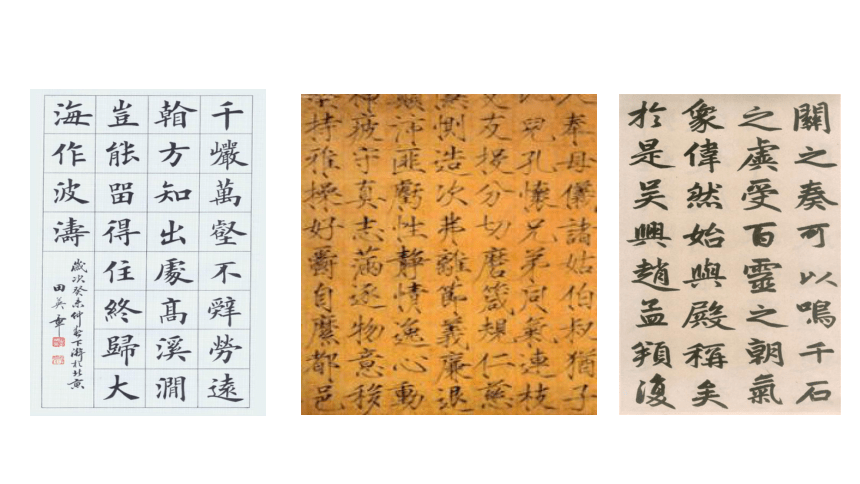 千巖萬壑不辭勞遠
看方知出處高溪澗
豈能留得住終歸大
海作波濤
歲次癸未仲春下澣於北京
田英章
入奉母儀諸姑伯叔猶子
比兒孔懷兄弟同氣連枝
交友投分切磨箴規仁慈
隱惻造次弗離節義廉退
顛沛匪虧性靜情逸心動
神疲守真志滿逐物意移
堅持雅操好爵自縻都邑
關之奏可以鳴千石
之虡受百靈之朝氣
象偉然始與殿稱矣
於是吳興趙孟頫復